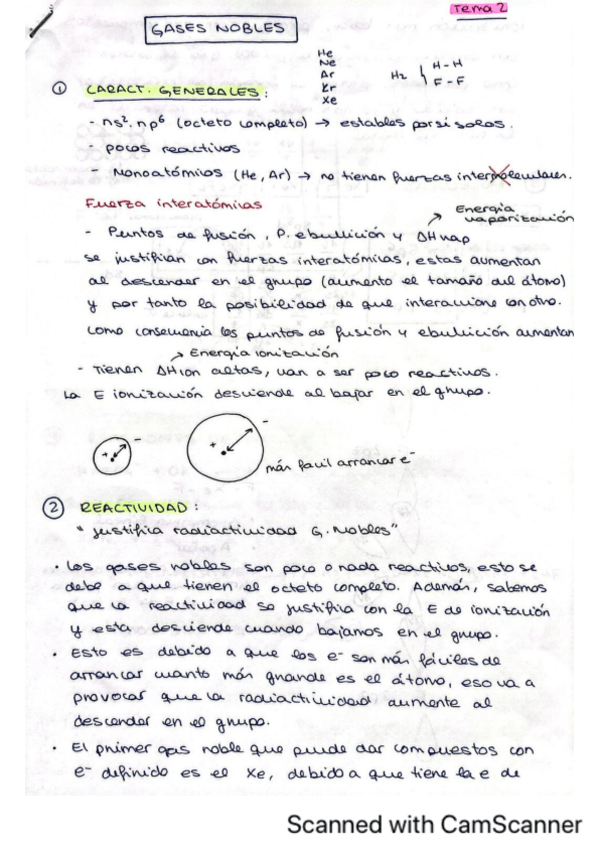 Tema 2
GASES NOBLES
He
Ne
Ar
Kr
Xe
H2 H-H
F-F
① CARACT. GENERALES:
- ns². np⁶ (octeto completo) → estables por si solos.
- pocos reactivos
- Monoatómios (He, Ar) → no tienen fuerzas intermoleculares.
Fuerza interatómicas
→ Energía vaporización
- Puntos de fusión, P. ebullición y ΔHvap
se justifican con fuerzas interatómicas, estas aumentan
al descender en el grupo (aumento el tamaño del átomo)
y por tanto la posibilidad de que interaccione con otro.
como consecuencia los puntos de fusión y ebullición aumentan
→ Energía ionización
- Tienen ΔHion altas, van a ser poco reactivos.
La E ionización desciende al bajar en el grupo.
+ -
+ -
más facil arrancar e⁻
② REACTIVIDAD:
"justifica radiactividad G. Nobles"
• Los gases nobles son poco o nada reactivos, esto se
debe a que tienen el octeto completo. Además, sabemos
que la reactividad se justifica con la E de ionización
y esta desciende cuando bajamos en el grupo.
• Esto es debido a que los e⁻ son más fáciles de
arrancar cuanto más grande es el átomo, eso va a
provocar que la radiactividad aumente al
descender en el grupo.
• El primer gas noble que puede dar compuestos con
e⁻ definido es el Xe, debido a que tiene la e de
Scanned with CamScanner